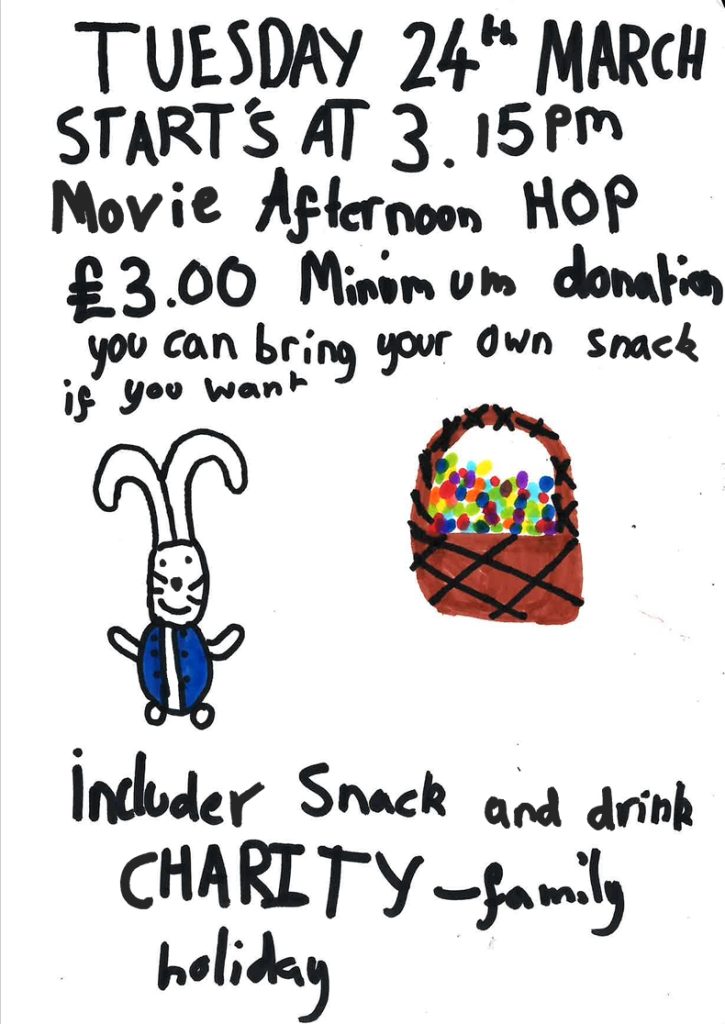 TUESDAY 24th MARCH
START'S AT 3.15pm
Movie Afternoon HOP
£3.00 Minimum donation
you can bring your own snack
if you want
includer Snack and drink
CHARITY - family
holiday